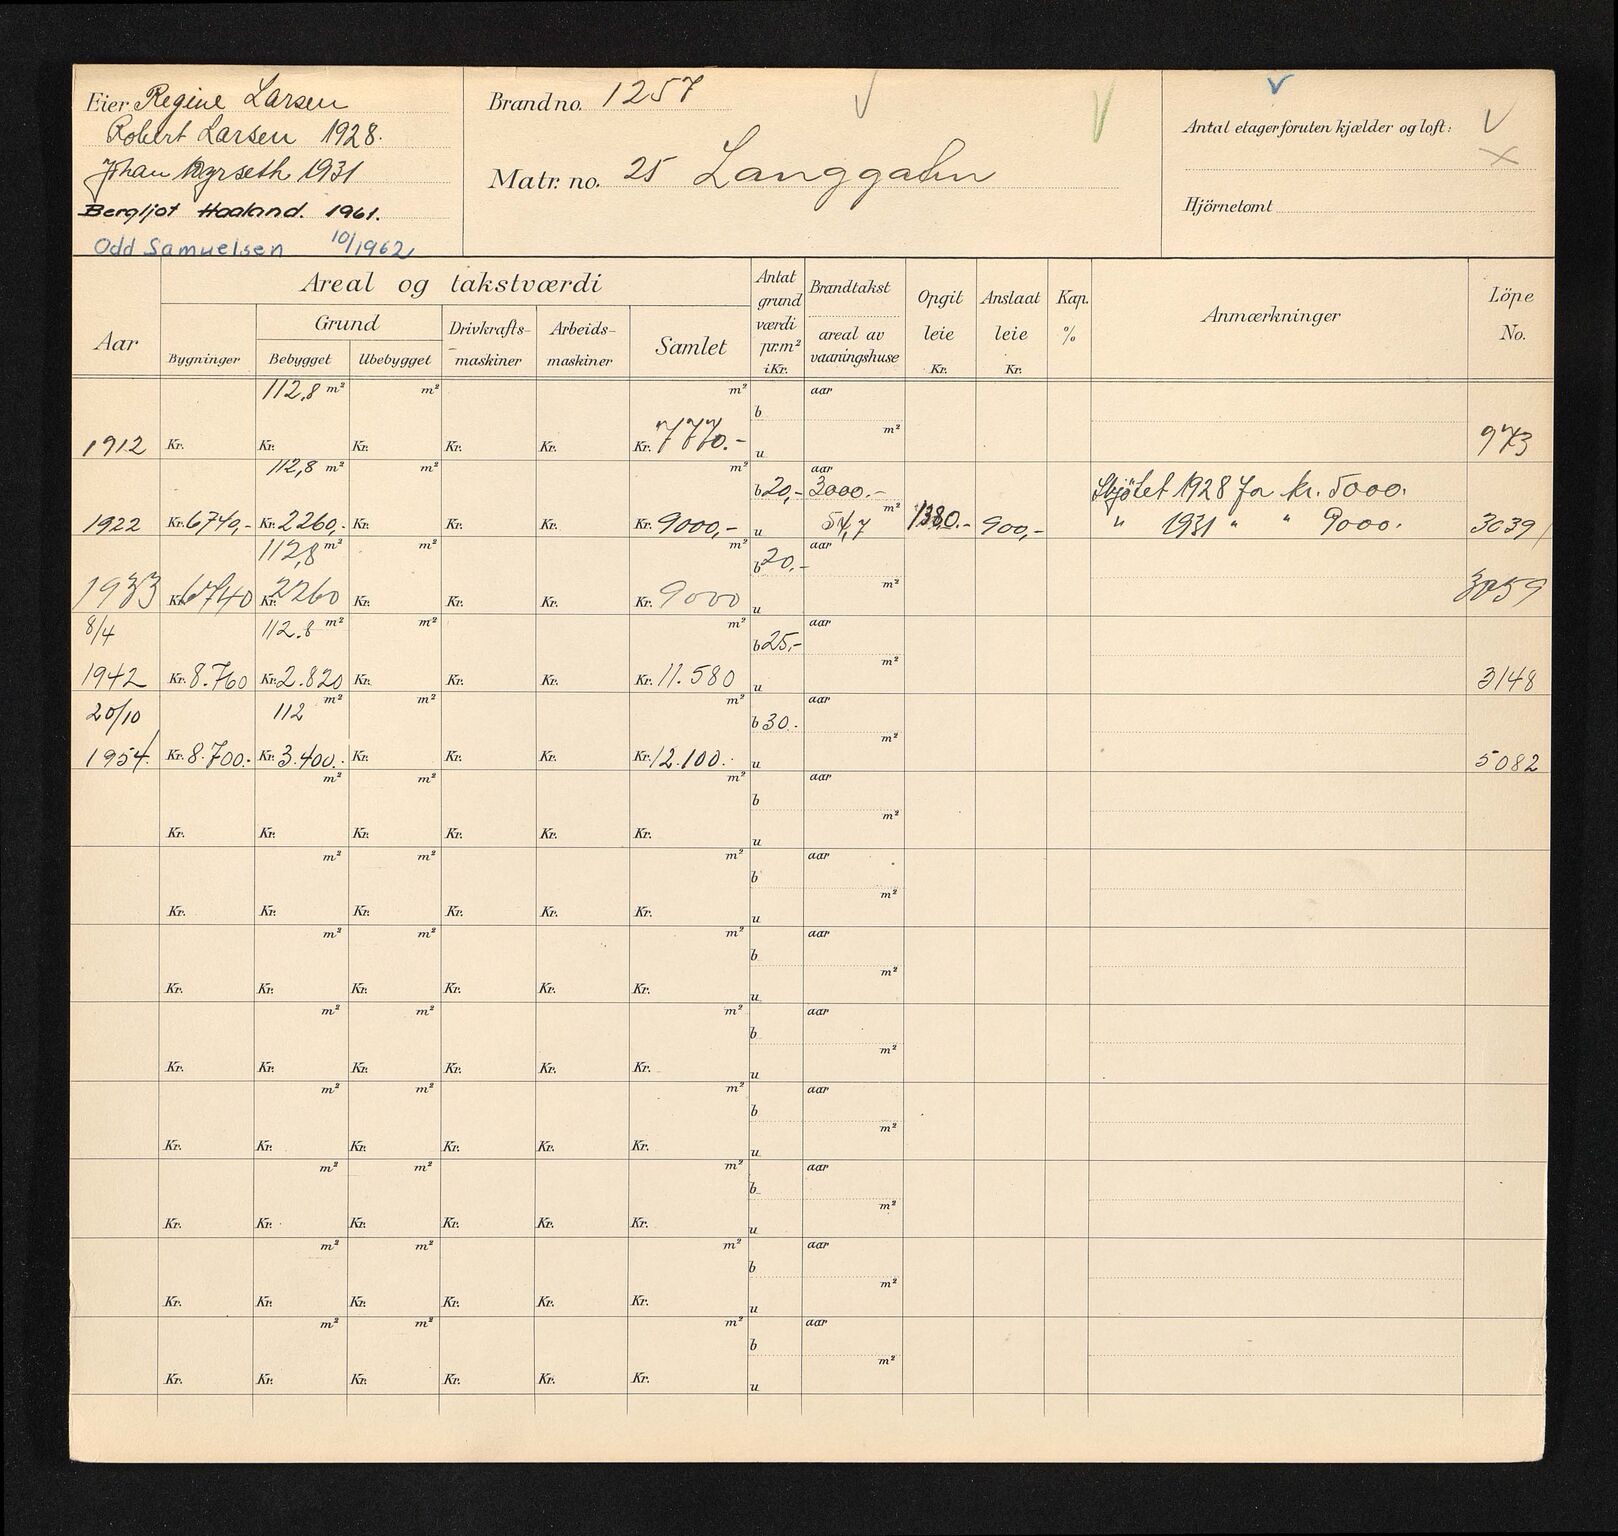 Eier Regine Larsen
Robert Larsen 1928.
Johan 1931
Bergljot Haaland. 1961.
Odd Samuelsen 10/1962
Brand no. 1257
Matr. no. 25 Langgaten
Antal etager foruten kjælder og loft:
Hjörnetomt
Aar
Areal og takstværdi
Bygninger
Grund
Bebygget Ubebygget
Drivkrafts-
maskiner
Arbeids-
maskiner
Samlet
Antat
grund
værdi
pr. m²
i Kr.
Brandtakst
areal av
vaaningshuse
Opgit
leie
Kr.
Anslaat
leie
Kr.
Kap.
%
Anmærkninger
Löpe
No.
112,8 m² m² m² b aar
1912 Kr. Kr. Kr. Kr. Kr. Kr. 7770.- u m² 973
112,8 m² m² m² b 20,- aar 3000.- Skjötet 1928 for kr. 5000.
1922 Kr. 6740,- Kr. 2260,- Kr. Kr. Kr. Kr. 9000,- u 54,7 m² 1380.- 900,- " 1931 " " 9000. 3039
112,8 m² m² m² b 20.- aar
1933 Kr. 6740 Kr. 2260 Kr. Kr. Kr. Kr. 9000 u m² 3059
8/4 112.8 m² m² m² b 25,- aar
1942 Kr. 8.760 Kr. 2.820 Kr. Kr. Kr. Kr. 11.580 u m² 3148
20/10 112 m² m² m² b 30.- aar
1954. Kr. 8.700.- Kr. 3.400.- Kr. Kr. Kr. Kr. 12.100.- u m² 5082
m² m² m² b aar
Kr. Kr. Kr. Kr. Kr. Kr. u m²
m² m² m² b aar
Kr. Kr. Kr. Kr. Kr. Kr. u m²
m² m² m² b aar
Kr. Kr. Kr. Kr. Kr. Kr. u m²
m² m² m² b aar
Kr. Kr. Kr. Kr. Kr. Kr. u m²
m² m² m² b aar
Kr. Kr. Kr. Kr. Kr. Kr. u m²
m² m² m² b aar
Kr. Kr. Kr. Kr. Kr. Kr. u m²
m² m² m² b aar
Kr. Kr. Kr. Kr. Kr. Kr. u m²
m² m² m² b aar
Kr. Kr. Kr. Kr. Kr. Kr. u m²